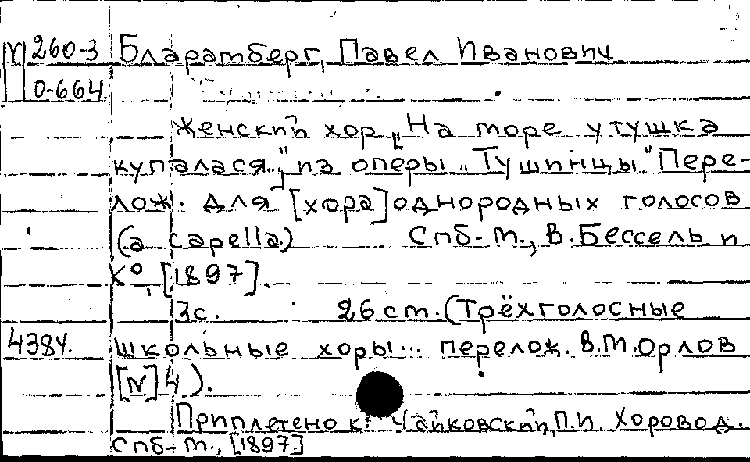 N 260-3 Бларамберг, Павел Иванович
0-664
Женский хор „На море утушка
купалася..." из оперы „Тушинцы" Пере-
лож. для [хора] однородных голосов
(a capella) Спб-М., В. Бессель и
Kº, [1897].
3с. 26 cm. (Трёхголосные
438у. школьные хоры... перелож. В.М.Орлов
[N] 4.).
Приплетено к: Чайковский, П.И. Хоровод.
Спб-М., [1897]